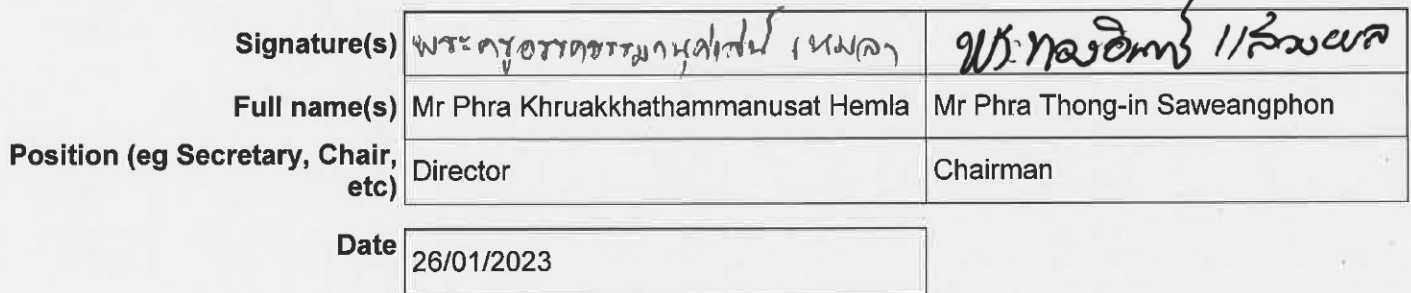 Signature(s) พระครูอรรคธรรมานุศาสน์ เหมลา พระทองอินทร์ แสวงผล
Full name(s) Mr Phra Khruakkhathammanusat Hemla Mr Phra Thong-in Saweangphon
Position (eg Secretary, Chair, etc) Director Chairman
Date 26/01/2023